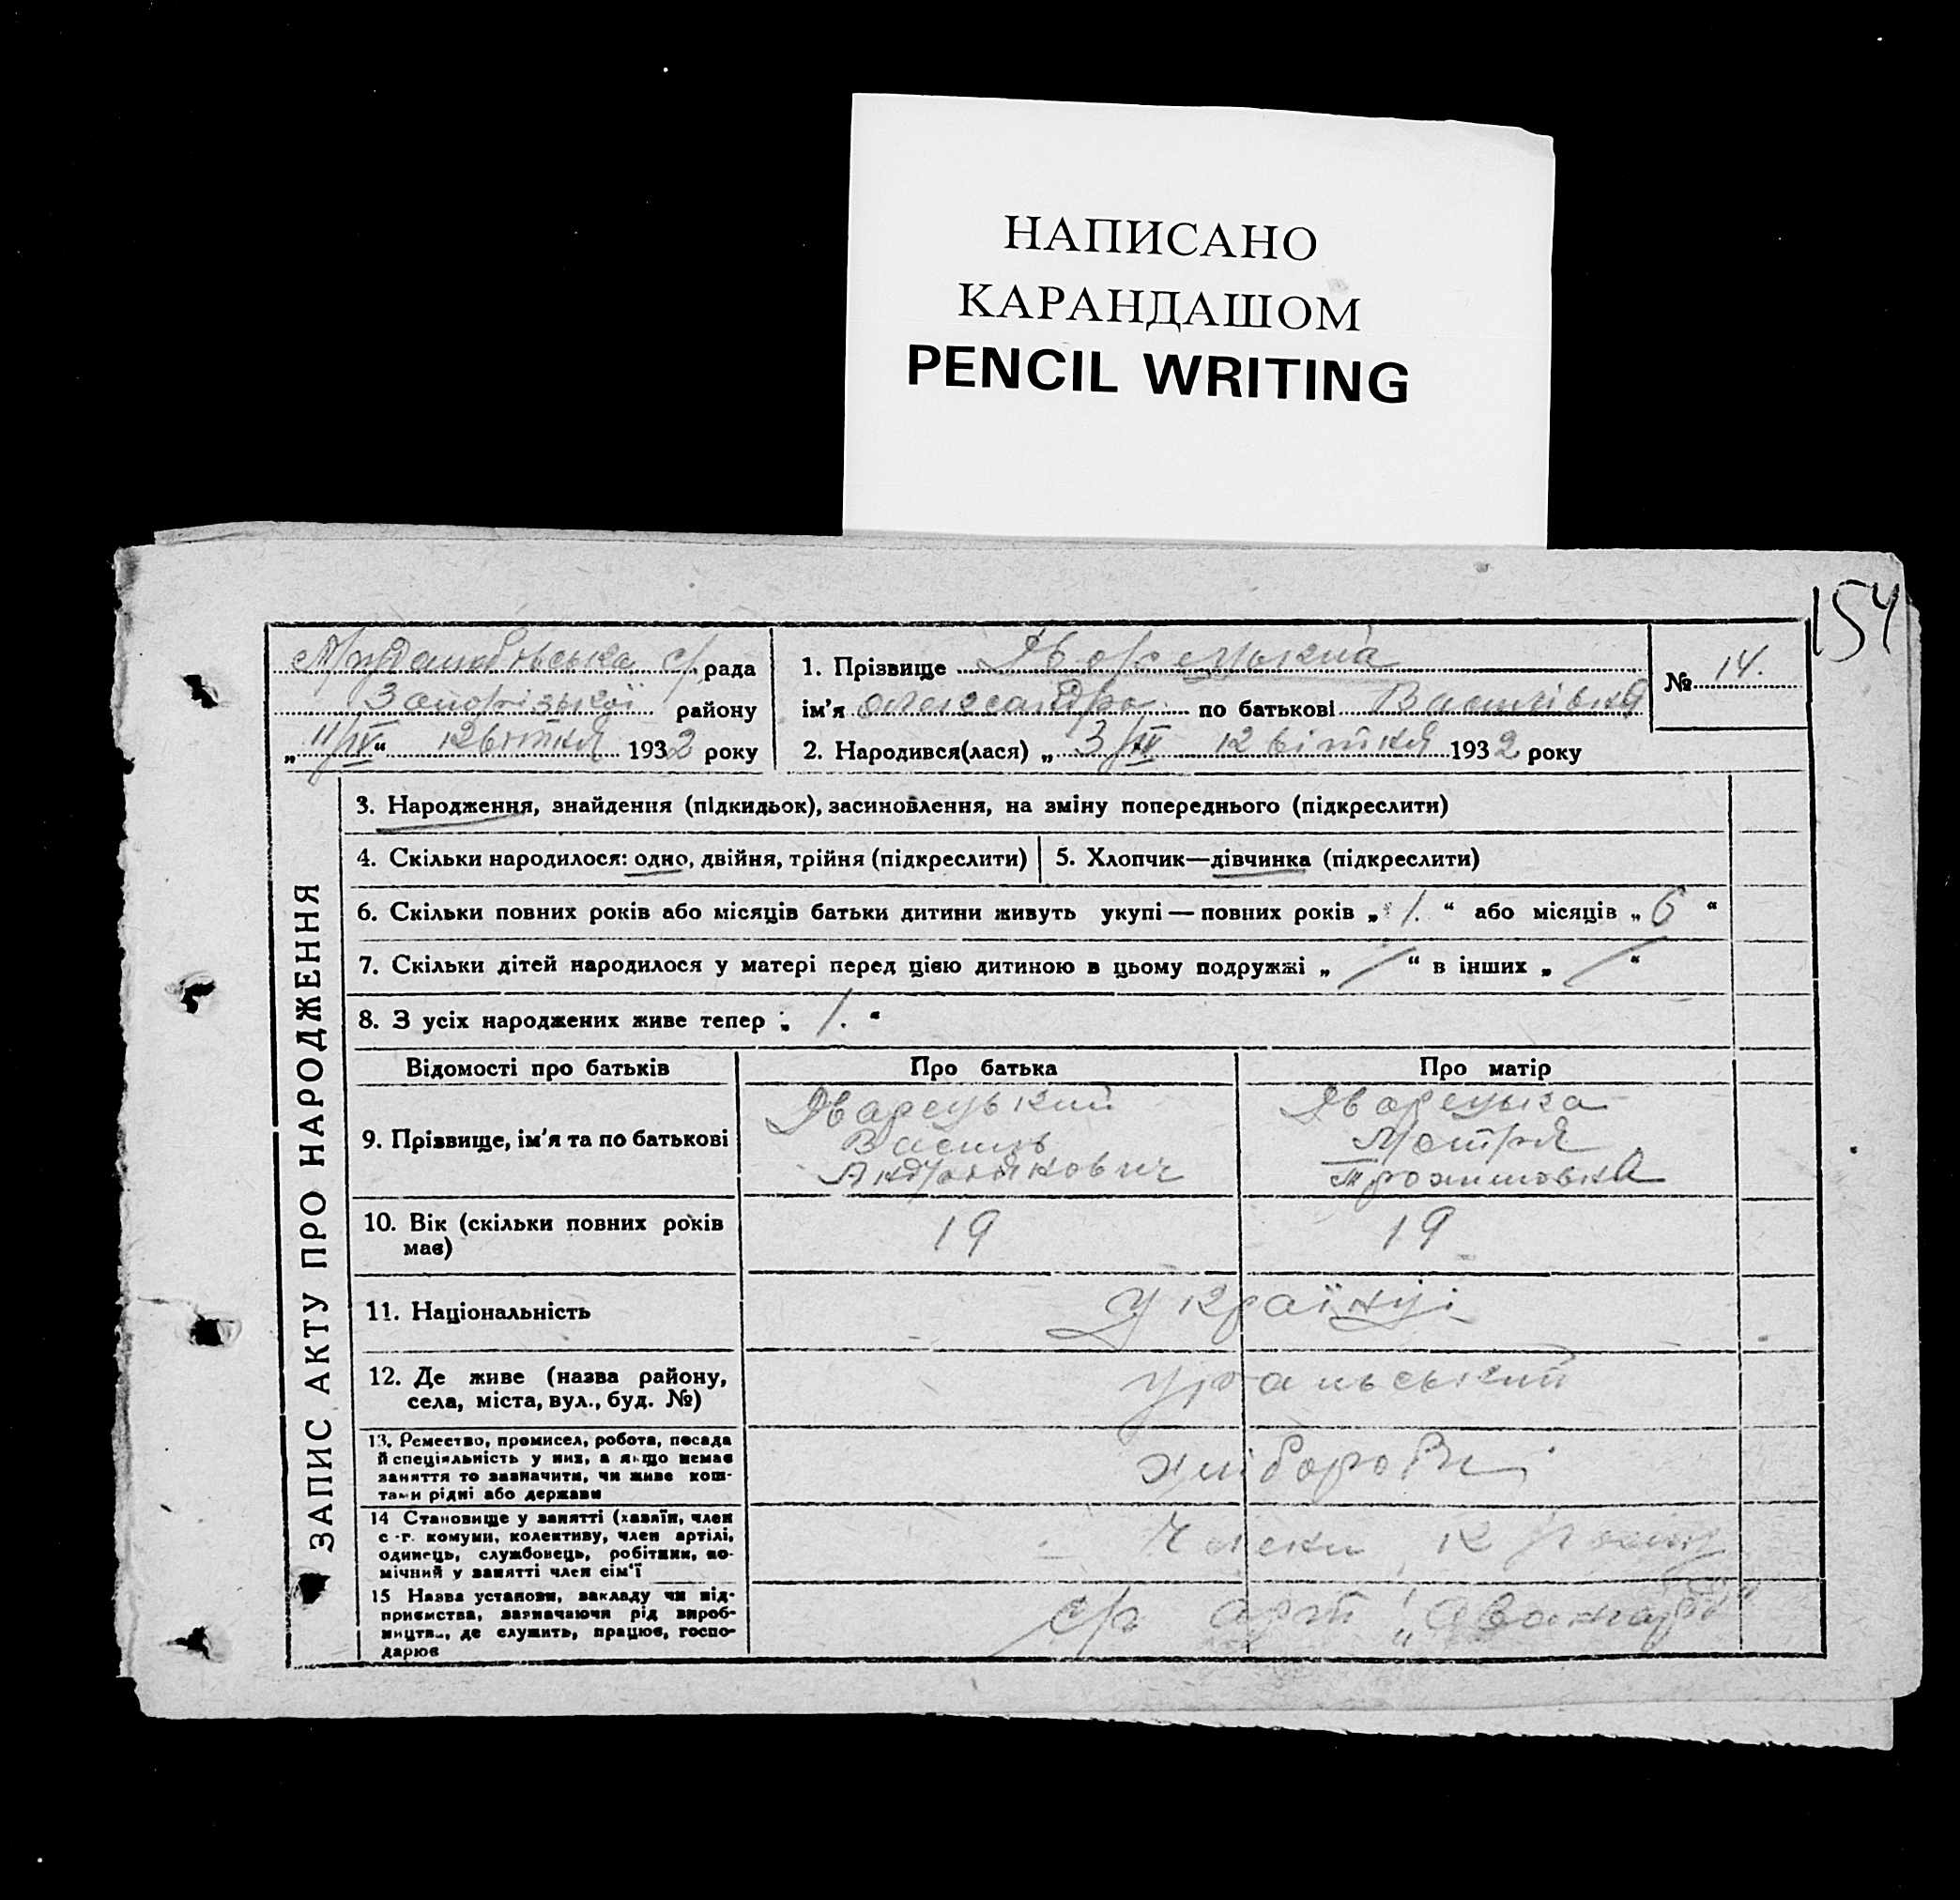 НАПИСАНО
КАРАНДАШОМ
PENCIL WRITING
154
с/рада
Запорізької району
„11/IV“ квітня 1932 року
1. Прізвище
ім'я Олександра по батькові Василівна
2. Народився(лася) „3/IV квітня 1932 року
№ 14.
ЗАПИС АКТУ ПРО НАРОДЖЕННЯ
3. Народження, знайдення (підкидьок), засиновлення, на зміну попереднього (підкреслити)
4. Скільки народилося: одно, двійня, трійня (підкреслити)
5. Хлопчик—дівчинка (підкреслити)
6. Скільки повних років або місяців батьки дитини живуть укупі — повних років „1.“ або місяців „6“
7. Скільки дітей народилося у матері перед цією дитиною в цьому подружжі „/“ в інших „/“
8. З усіх народжених живе тепер „1.“
Відомості про батьків
Про батька
Про матір
9. Прізвище, ім'я та по батькові
Дварецький
Василь
Андріякович
Дварецька
Мотря
Трохимовна
10. Вік (скільки повних років
має)
19
19
11. Національність
Українці
12. Де живе (назва району,
села, міста, вул., буд. №)
Уральський
13. Ремество, промисел, робота, посада
й спеціяльність у них, а якщо немає
заняття то зазначити, чи живе кош-
тами рідні або держави
хлібороби
14 Становище у занятті (хазяїн, член
с.-г. комуни, колективу, член артілі,
одинець, службовець, робітник, по-
мічний у занятті член сім'ї
Члени
15 Назва установи, закладу чи під-
приємства, зазначаючи рід вироб-
ництв., де служить, працює, госпо-
дарює
с/г арт „Авангард“